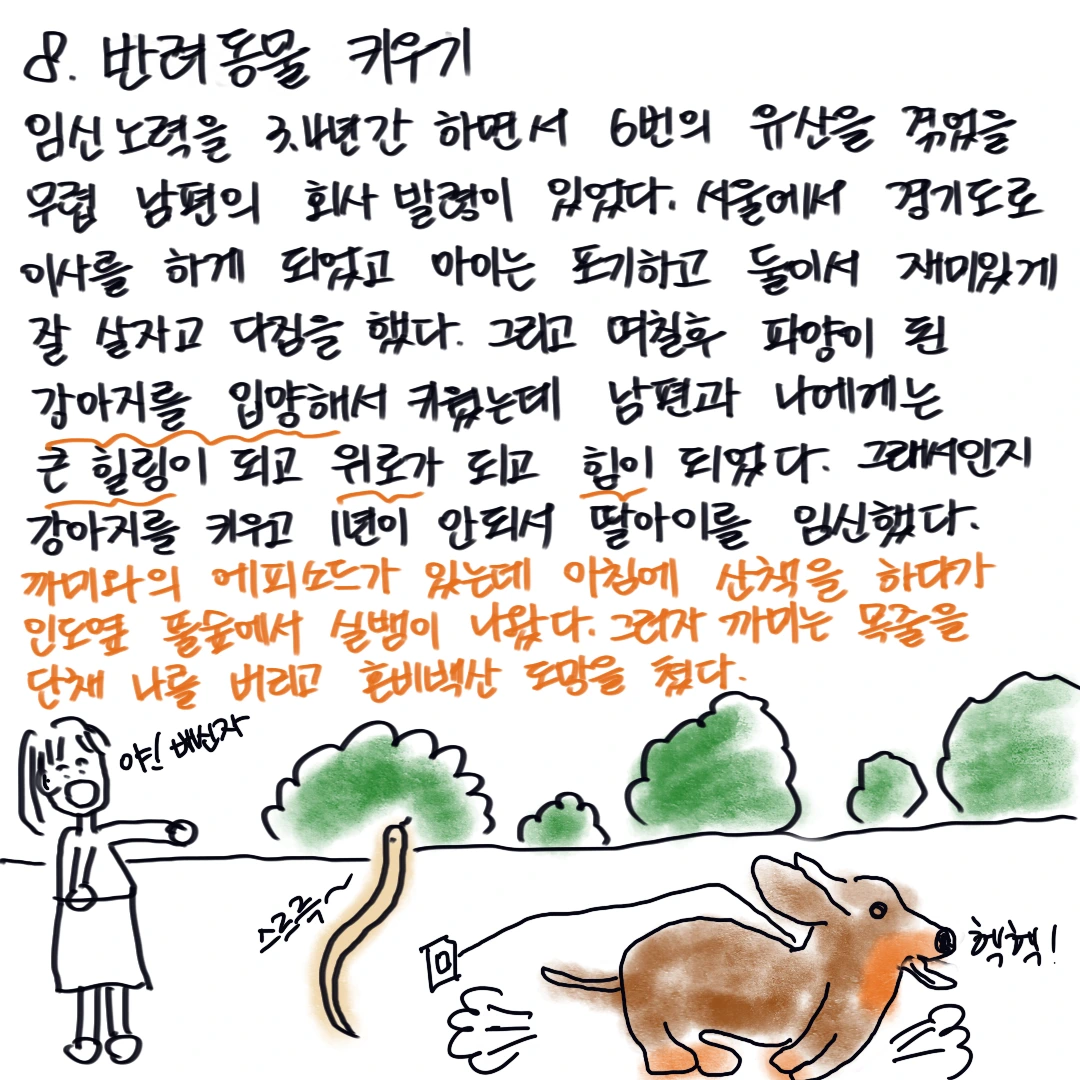 8. 반려동물 키우기
임신노력을 3,4년간 하면서 6번의 유산을 겪었을
무렵 남편의 회사 발령이 있었다. 서울에서 경기도로
이사를 하게 되었고 아이는 포기하고 둘이서 재미있게
잘 살자고 다짐을 했다. 그리고 며칠후 파양이 된
강아지를 입양해서 키웠는데 남편과 나에게는
큰 힐링이 되고 위로가 되고 힘이 되었다. 그래서인지
강아지를 키우고 1년이 안되서 딸아이를 임신했다.
까미와의 에피소드가 있는데 아침에 산책을 하다가
인도옆 풀숲에서 실뱀이 나왔다. 그러자 까미는 목줄을
단채 나를 버리고 혼비백산 도망을 쳤다.
야! 배신자
스르륵~
헥헥!